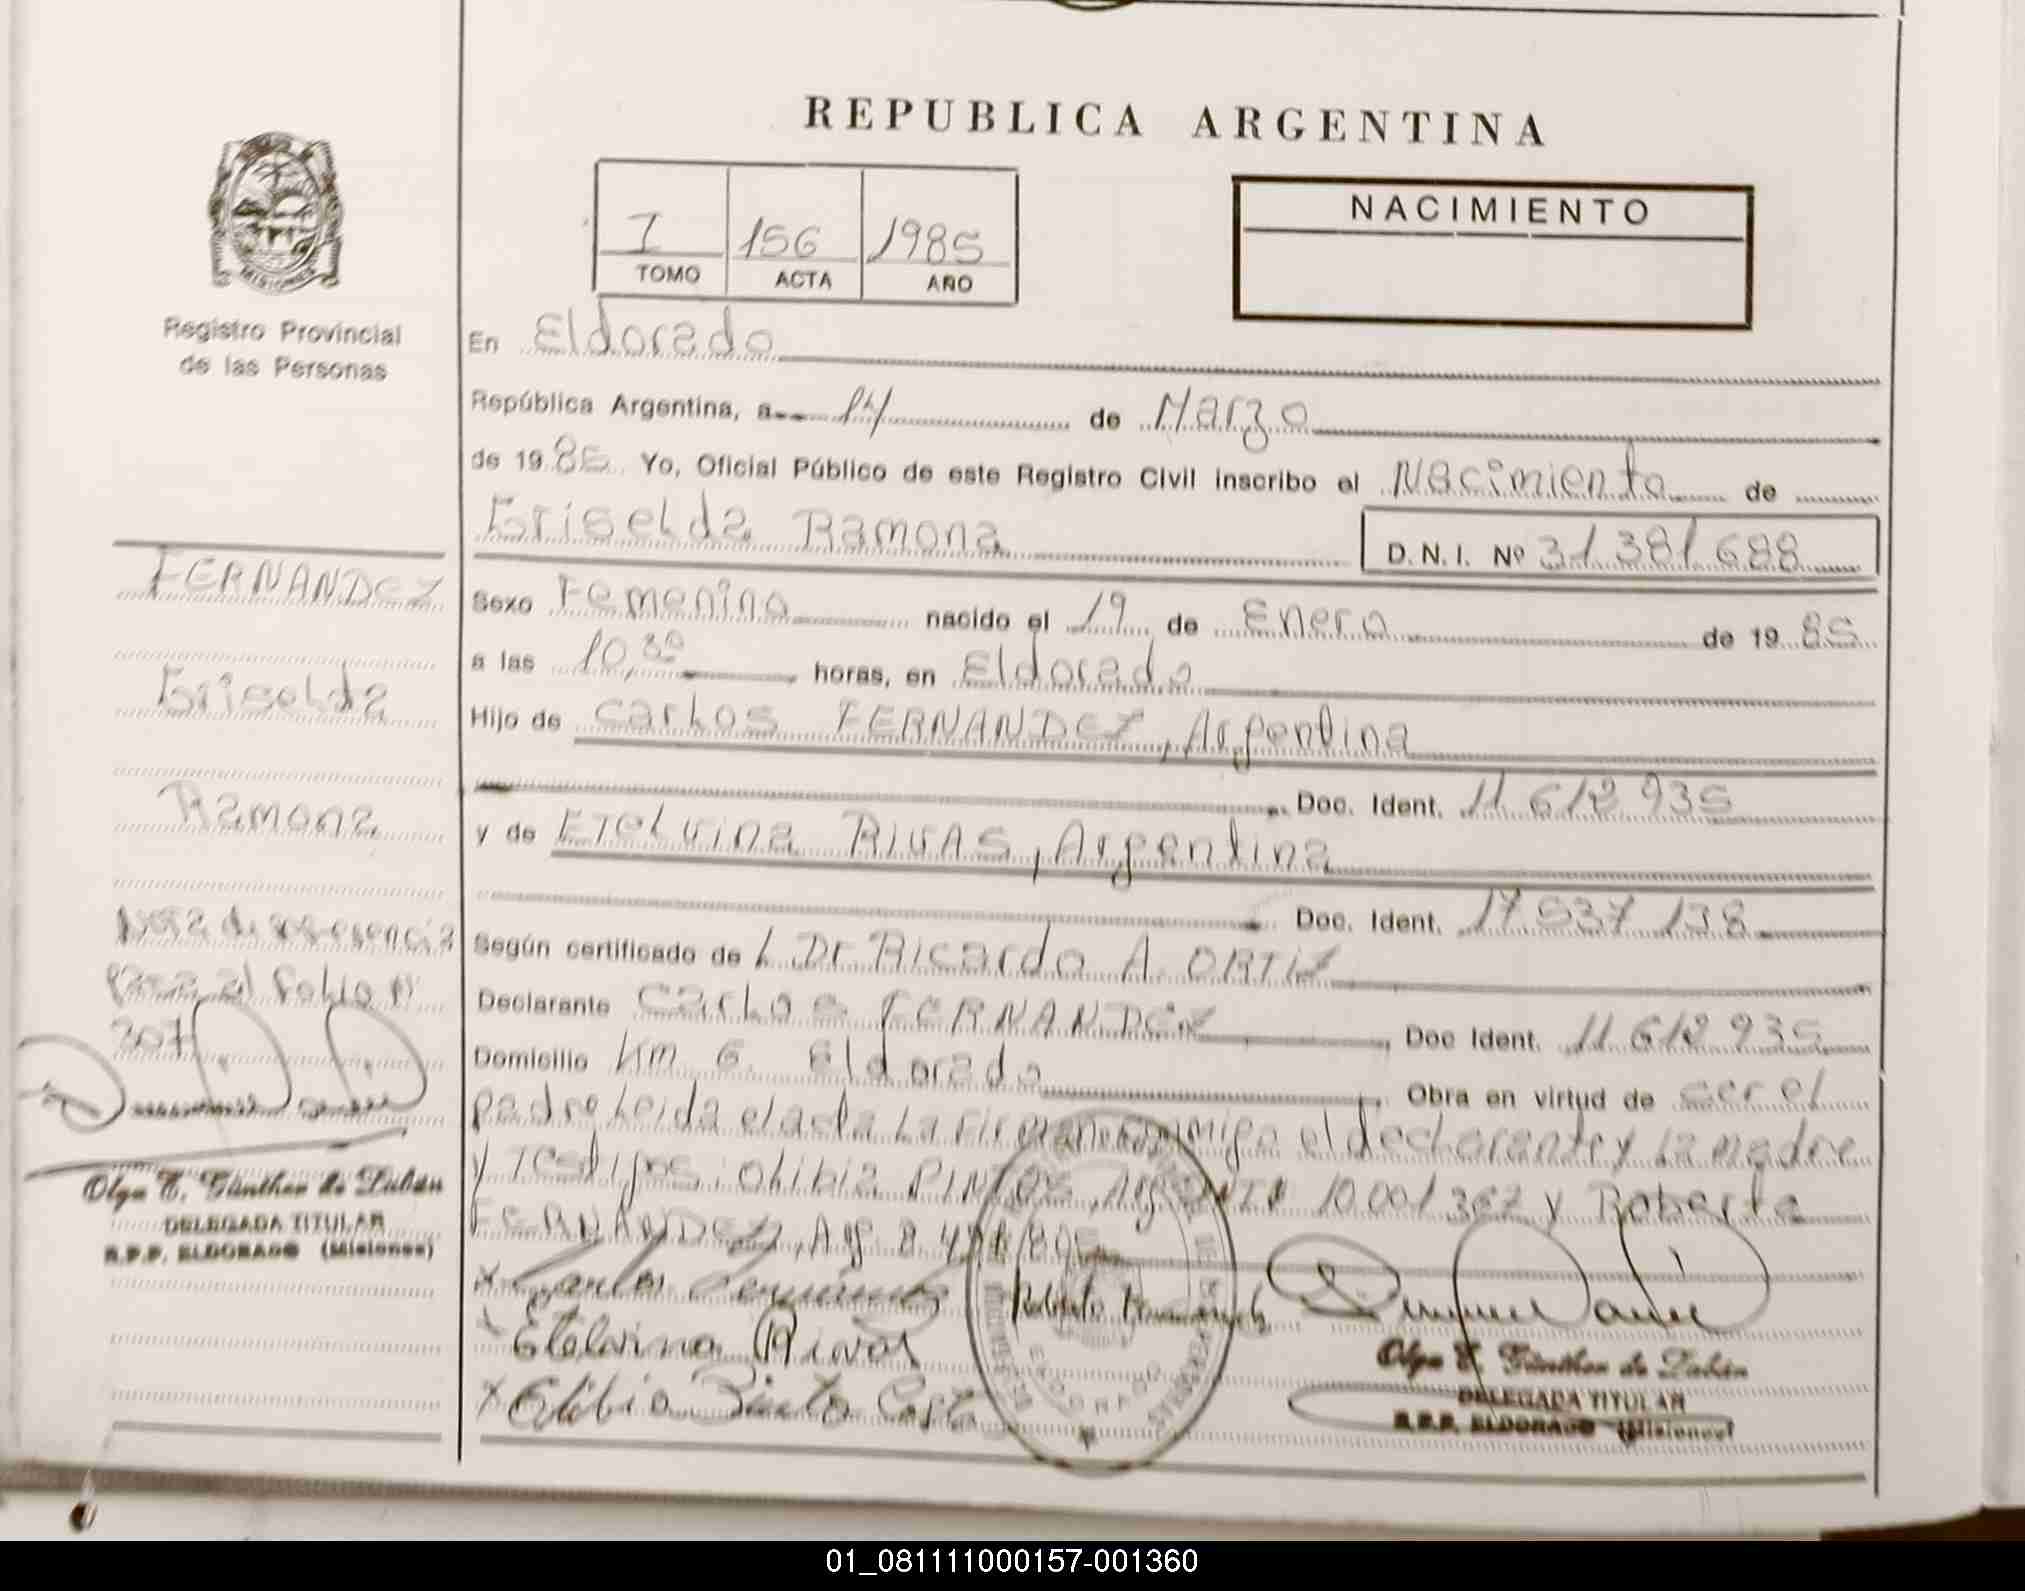 REPUBLICA ARGENTINA
MISIONES
Registro Provincial
de las Personas
I 156 1985
TOMO ACTA AÑO
NACIMIENTO
En Eldorado
República Argentina, a 14 de Marzo
de 1985 Yo, Oficial Público de este Registro Civil inscribo el Nacimiento de
Griselda Ramona D.N.I. Nº 31.381.688
Sexo Femenino nacido el 19 de Enero de 1985
a las 10,30 horas, en Eldorado
Hijo de Carlos FERNANDEZ, Argentina
Doc. Ident. 11.612.935
y de Etelvina RIVAS, Argentina
Doc. Ident. 17.537.138
Según certificado de L Dr Ricardo A. ORTIZ
Declarante Carlos FERNANDEZ Doc Ident. 11.612.935
Domicilio Km 6. Eldorado Obra en virtud de ser el
padre Leida el acta La firman conmigo el declarante y La madre
y Testigos: Olibia PINTOS, 10.001.367 y Roberto
FERNANDEZ, Arg 8.
FERNANDEZ
Griselda
Ramona
Nota de
Pasa al Folio Nº
207
Olga E. Günther de Dubán
DELEGADA TITULAR
R.P.P. ELDORADO (Misiones)
Carlos Fernandez
Roberto Fernandez
Etelvina Rivas
Olibia Pinto Costa
ELDORADO
Olga E. Günther de Dubán
DELEGADA TITULAR
R.P.P. ELDORADO (Misiones)
01_081111000157-001360